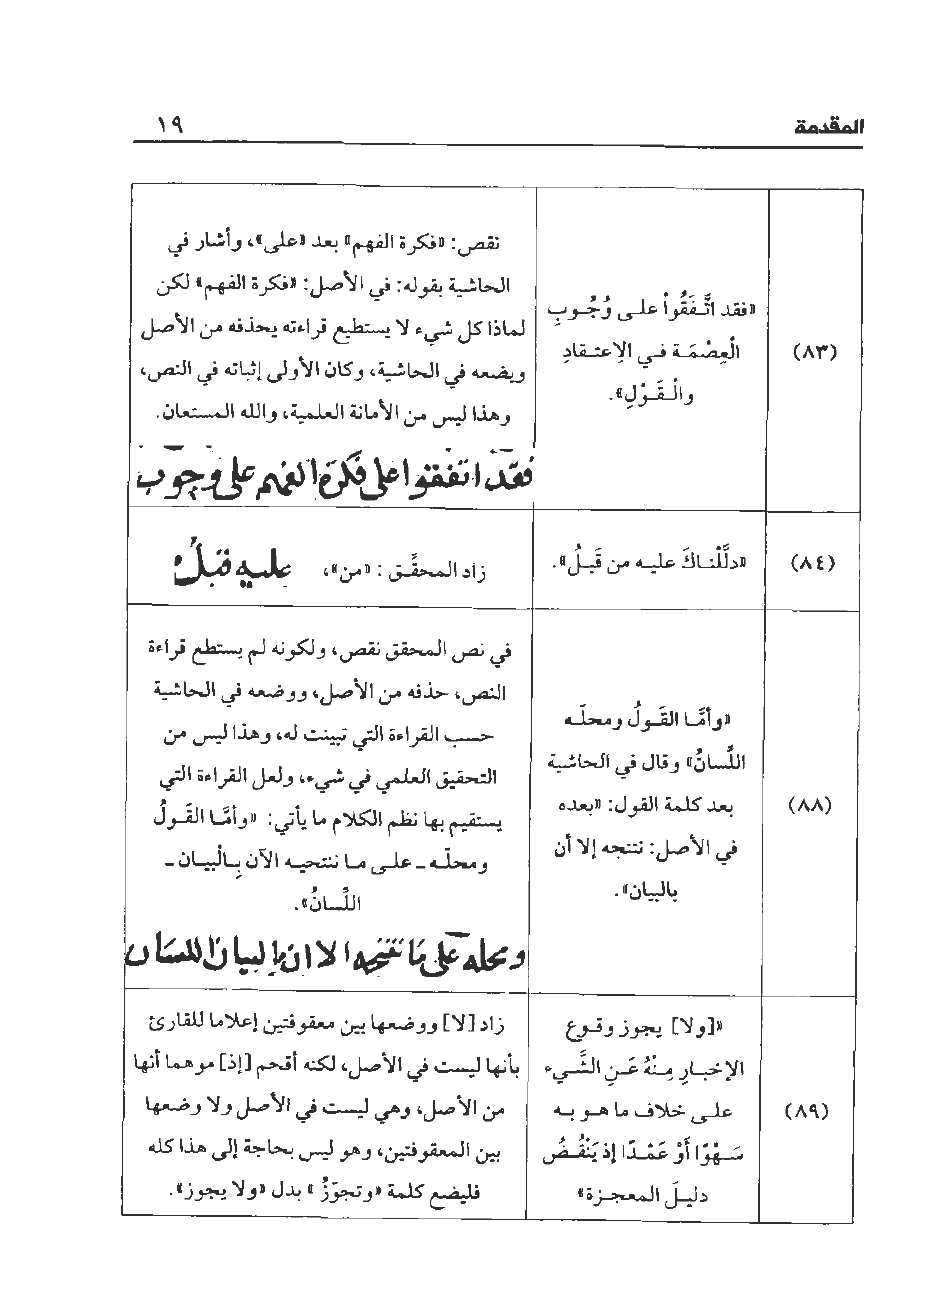 المقدمة ١٩
(٨٣)
«فقد اتَّفَقُواْ على وُجُوبِ
الْعِصْمَة في الاِعتقادِ
والْقَوْلِ».
نقص: «فكرة الفهم» بعد «على»، وأشار في
الحاشية بقوله: في الأصل: «فكرة الفهم» لكن
لماذا كل شيء لا يستطيع قراءته يحذفه من الأصل
ويضعه في الحاشية، وكان الأولى إثباته في النص،
وهذا ليس من الأمانة العلمية، والله المستعان.
فقد اتفقوا على فكرة الفهم على وجوب
(٨٤)
«دلَّلْناكَ عليه من قَبلُ».
زاد المحقِّق : «من»، عليه قبلُ
(٨٨)
«وأمَّا القَولُ ومحلّه
اللِّسانُ» وقال في الحاشية
بعد كلمة القول: «بعده
في الأصل: نتنجه إلا أن
بالبيان».
في نص المحقق نقص، ولكونه لم يستطع قراءة
النص، حذفه من الأصل، ووضعه في الحاشية
حسب القراءة التي تبينت له، وهذا ليس من
التحقيق العلمي في شيء، ولعل القراءة التي
يستقيم بها نظم الكلام ما يأتي: «وأمَّا القَولُ
ومحلّه - على ما ننتحيه الآن بِالْبيان -
اللِّسانُ».
ومحله على ما الا ان بالبيان اللسان
(٨٩)
«[ولا] يجوز وقوع
الإخبارِ مِنْهُ عَنِ الشَّيء
على خلاف ما هو به
سَهْوًا أَوْ عَمْدًا إذ يَنْقُضُ
دليلَ المعجزة»
زاد [لا] ووضعها بين معقوفتين إعلاما للقارئ
بأنها ليست في الأصل، لكنه أقحم [إذ] موهما أنها
من الأصل، وهي ليست في الأصل ولا وضعها
بين المعقوفتين، وهو ليس بحاجة إلى هذا كله
فليضع كلمة «وتجوّزُ» بدل «ولا يجوز».